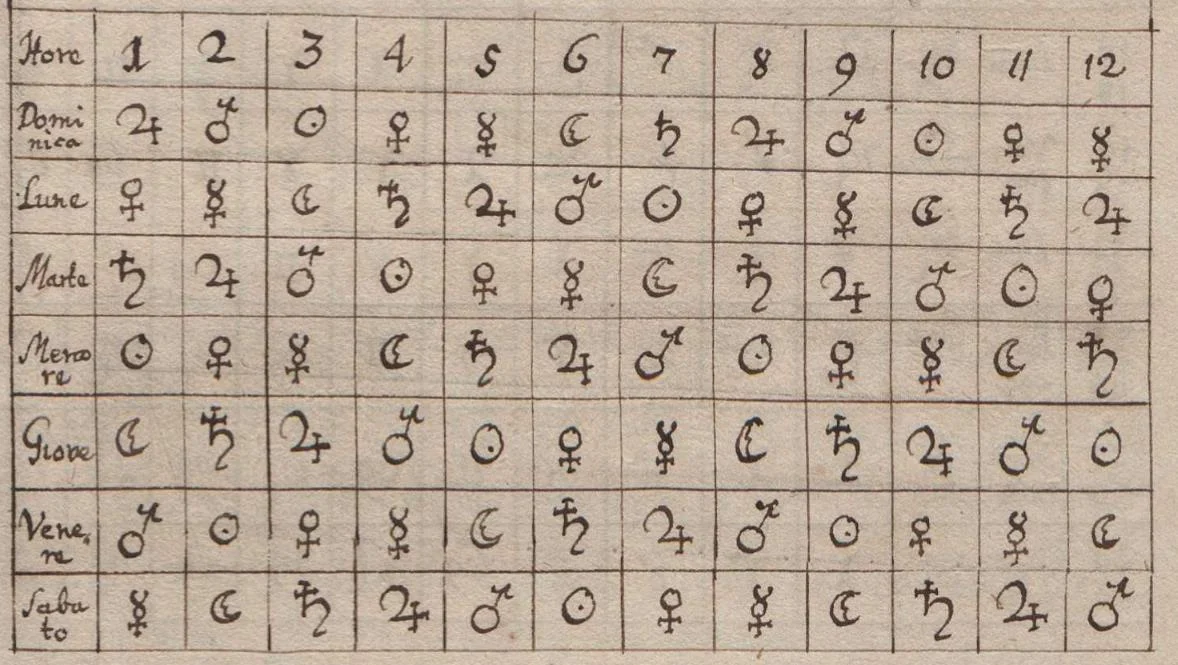 Hore 1 2 3 4 5 6 7 8 9 10 11 12
Domi
nica ♃ ♂ ☉ ♀ ☿ ☾ ♄ ♃ ♂ ☉ ♀ ☿
Lune ♀ ☿ ☾ ♄ ♃ ♂ ☉ ♀ ☿ ☾ ♄ ♃
Marte ♄ ♃ ♂ ☉ ♀ ☿ ☾ ♄ ♃ ♂ ☉ ♀
Merco
re ☉ ♀ ☿ ☾ ♄ ♃ ♂ ☉ ♀ ☿ ☾ ♄
Giove ☾ ♄ ♃ ♂ ☉ ♀ ☿ ☾ ♄ ♃ ♂ ☉
Vene,
re ♂ ☉ ♀ ☿ ☾ ♄ ♃ ♂ ☉ ♀ ☿ ☾
Saba
to ☿ ☾ ♄ ♃ ♂ ☉ ♀ ☿ ☾ ♄ ♃ ♂